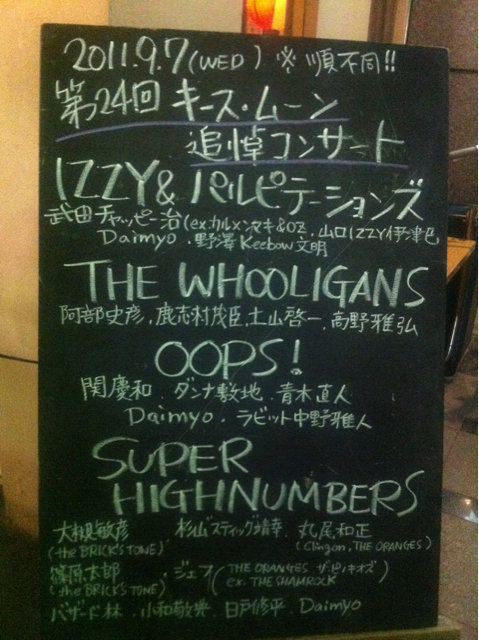 2011.9.7(WED) ※順不同!!
第24回 キース・ムーン
追悼コンサート
IZZY& パルピテーションズ
武田チャッピー治(ex.カルメン・マキ&OZ、山口IZZY伊津巳
Daimyo、野澤Keebow文明
THE WHOOLIGANS
阿部史彦、鹿志村茂臣、土山啓一、高野雅弘
OOPS!
関慶和 ダンナ敷地、青木直人
Daimyo、ラビット中野雅人
SUPER
HIGHNUMBERS
大槻敏彦 杉山"スティッグ"靖幸 丸尾和正
(the BRICK'S TONE) (Clingon, THE ORANGES)
篠原太郎 ・ジェフ(THE ORANGES ザ・ピノキオズ
(the BRICK'S TONE) ex. THE SHAMROCK)
バザード林、小和敬典、日戸修平、Daimyo